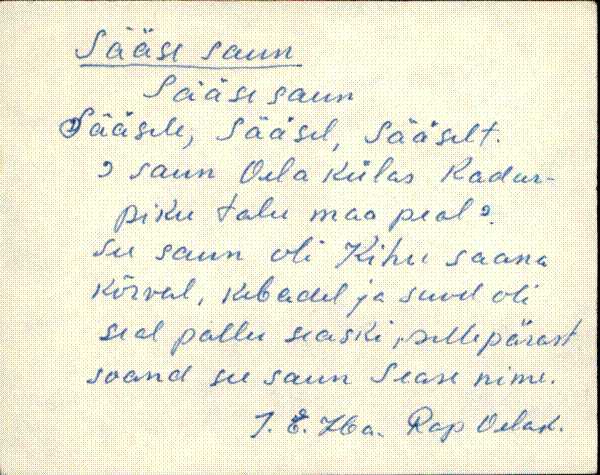 Sääse saun
Sääse saun
Sääsele, Sääsel, Sääselt.
saun Oela külas Kadar-
piku talu maa peal.
See saun oli Kihu saana
kõrval, kebadel ja suvel oli
seal pallu seaski, sellepärast
soand see saun Sease nime.
Rap Oelak.